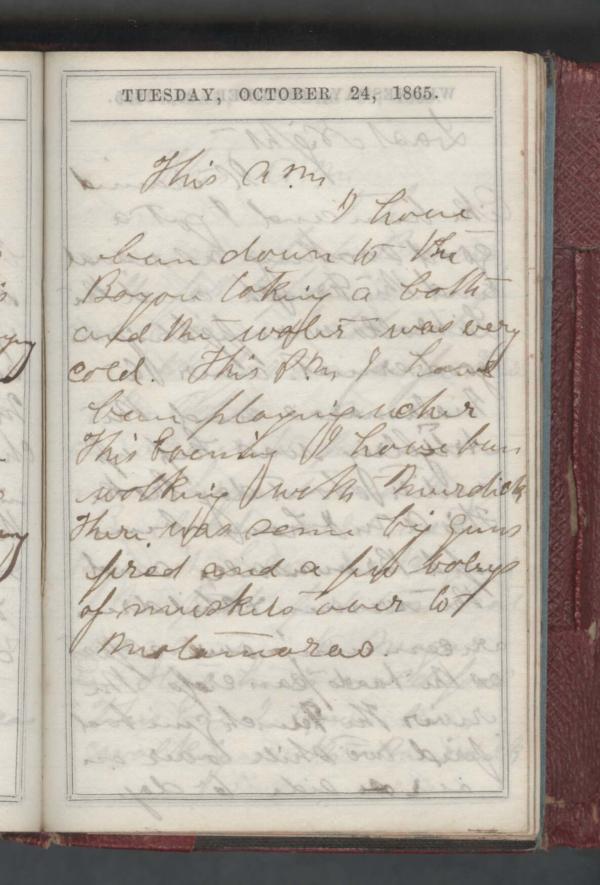 TUESDAY, OCTOBER 24, 1865.
This A.M.
I have
ben down to the
Bayou taking a bath
and the water was very
cold. This P.M. I have
ben playing ucher
This Evening I have ben
walking with Burdick
There was some big guns
fired and a few voleys
of muskets over to
Matamoras.